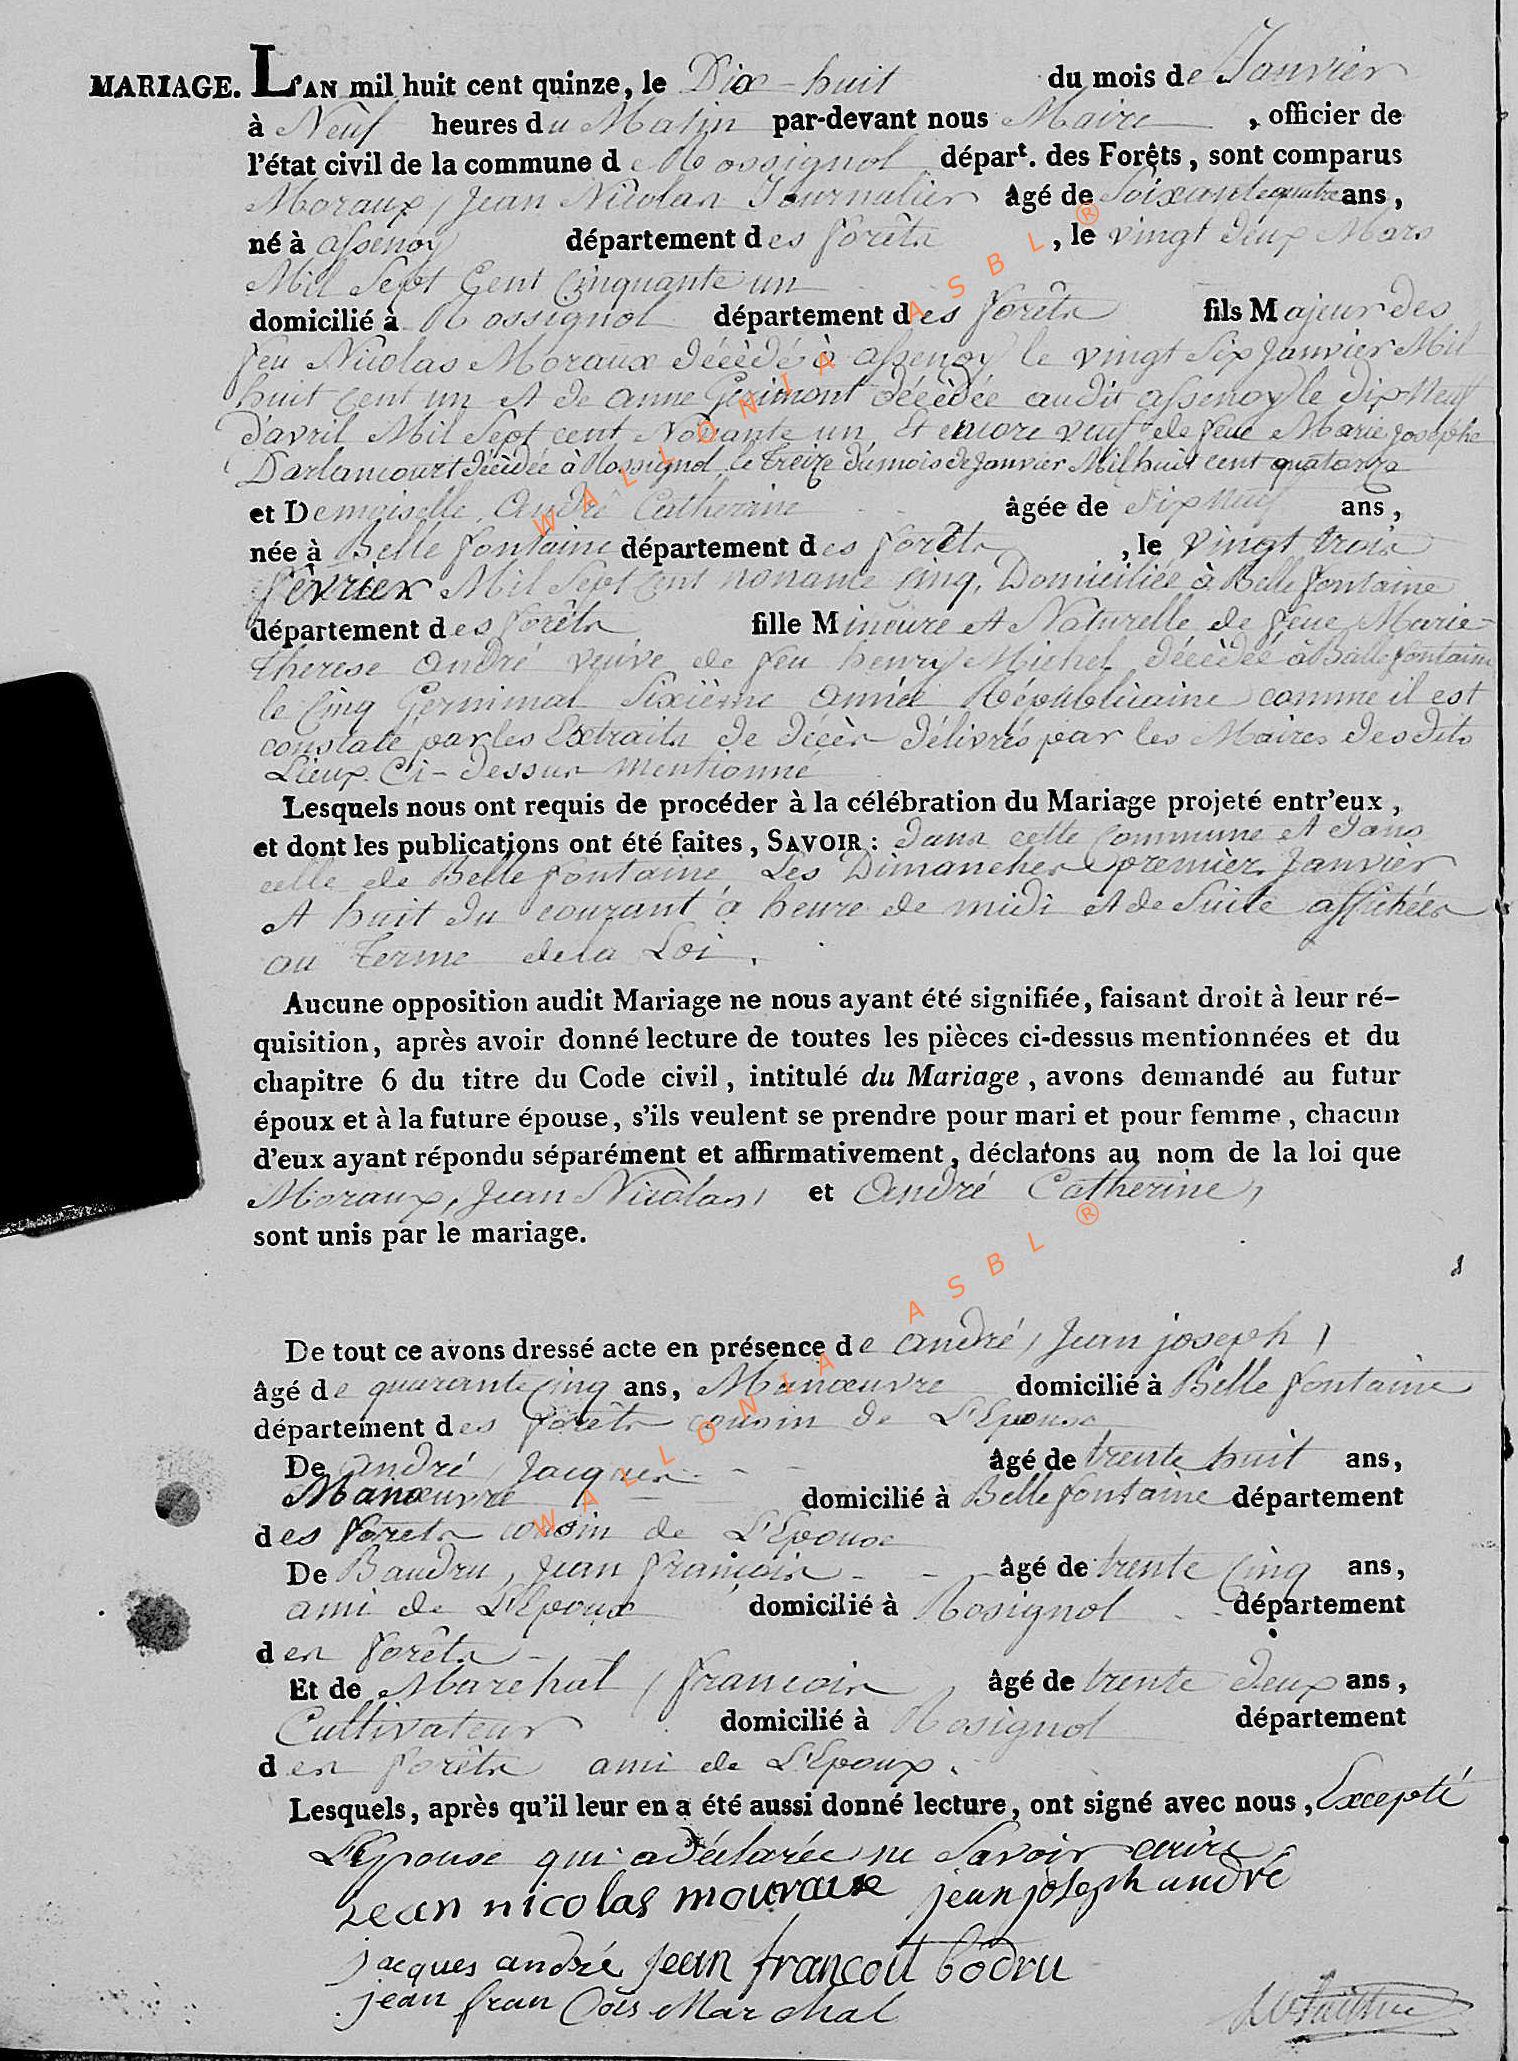 MARIAGE. L'AN mil huit cent quinze, le Dix-huit du mois de Janvier
à Neuf heures du Matin par-devant nous Maire , officier de
l'état civil de la commune de Rossignol départ. des Forêts, sont comparus
Moraux, Jean Nicolas Journalier Âgé de Soixante quatre ans,
né à assenoy département des forêts , le vingt deux Mars
Mil Sept Cent Cinquante un
domicilié à Rossignol département des forêts fils Majeur des
feu Nicolas Moraux décédé à assenoy le vingt Six Janvier Mil
huit Cent un et de anne Gerimont décédée audit assenoy le dix Neuf
d'avril Mil Sept cent Nonante un, Et encore veuf de feue Marie josephe
Darlancourt décédée à Rossignol le treize du mois de Janvier Mil huit cent quatorze
et Demoiselle André Catherine âgée de Dix Neuf ans,
née à Belle fontaine département des forêts , le vingt trois
février Mil Sept Cent nonante Cinq, Domiciliée à Belle fontaine
département des forêts fille Mineure et Naturelle de feue Marie-
therese André veuve de feu henry Michel décédée à Belle fontaine
le Cinq Germinal Sixième année Républicaine comme il est
constaté par les Extraits de décès délivrés par les Maires desdits
Lieux Ci-dessus mentionné
Lesquels nous ont requis de procéder à la célébration du Mariage projeté entr'eux,
et dont les publications ont été faites, SAVOIR: dans cette Commune et dans
celle de Belle fontaine Les Dimanches premier Janvier
et huit du courant à heure de midi et de Suite affichées
au terme de la Loi.
Aucune opposition audit Mariage ne nous ayant été signifiée, faisant droit à leur ré-
quisition, après avoir donné lecture de toutes les pièces ci-dessus mentionnées et du
chapitre 6 du titre du Code civil, intitulé du Mariage, avons demandé au futur
époux et à la future épouse, s'ils veulent se prendre pour mari et pour femme, chacun
d'eux ayant répondu séparément et affirmativement, déclarons au nom de la loi que
Moraux, Jean Nicolas, et André Catherine,
sont unis par le mariage.
De tout ce avons dressé acte en présence de andré, Jean joseph,
âgé de quarante Cinq ans, Manœuvre domicilié à Belle fontaine
département des forêts cousin de L'Epouse
De andré, Jacques âgé de trente huit ans,
Manœuvre domicilié à Belle fontaine département
des forets cousin de L'Epouse
De Baudru, Jean françois âgé de trente Cinq ans,
ami de L'Epoux domicilié à Rosignol département
des forêts
Et de Marchal, françois âgé de trente deux ans,
Cultivateur domicilié à Rosignol département
des forêts ami de L'Epoux.
Lesquels, après qu'il leur en a été aussi donné lecture, ont signé avec nous, Excepté
L'Epouse qui a déclarée ne Savoir ecrire
jean nicolas mouraux jean joseph andré
jacques andré jean francoit bodru
jean fran Cois Marchal
WALLONIA ASBL ®
WALLONIA ASBL ®